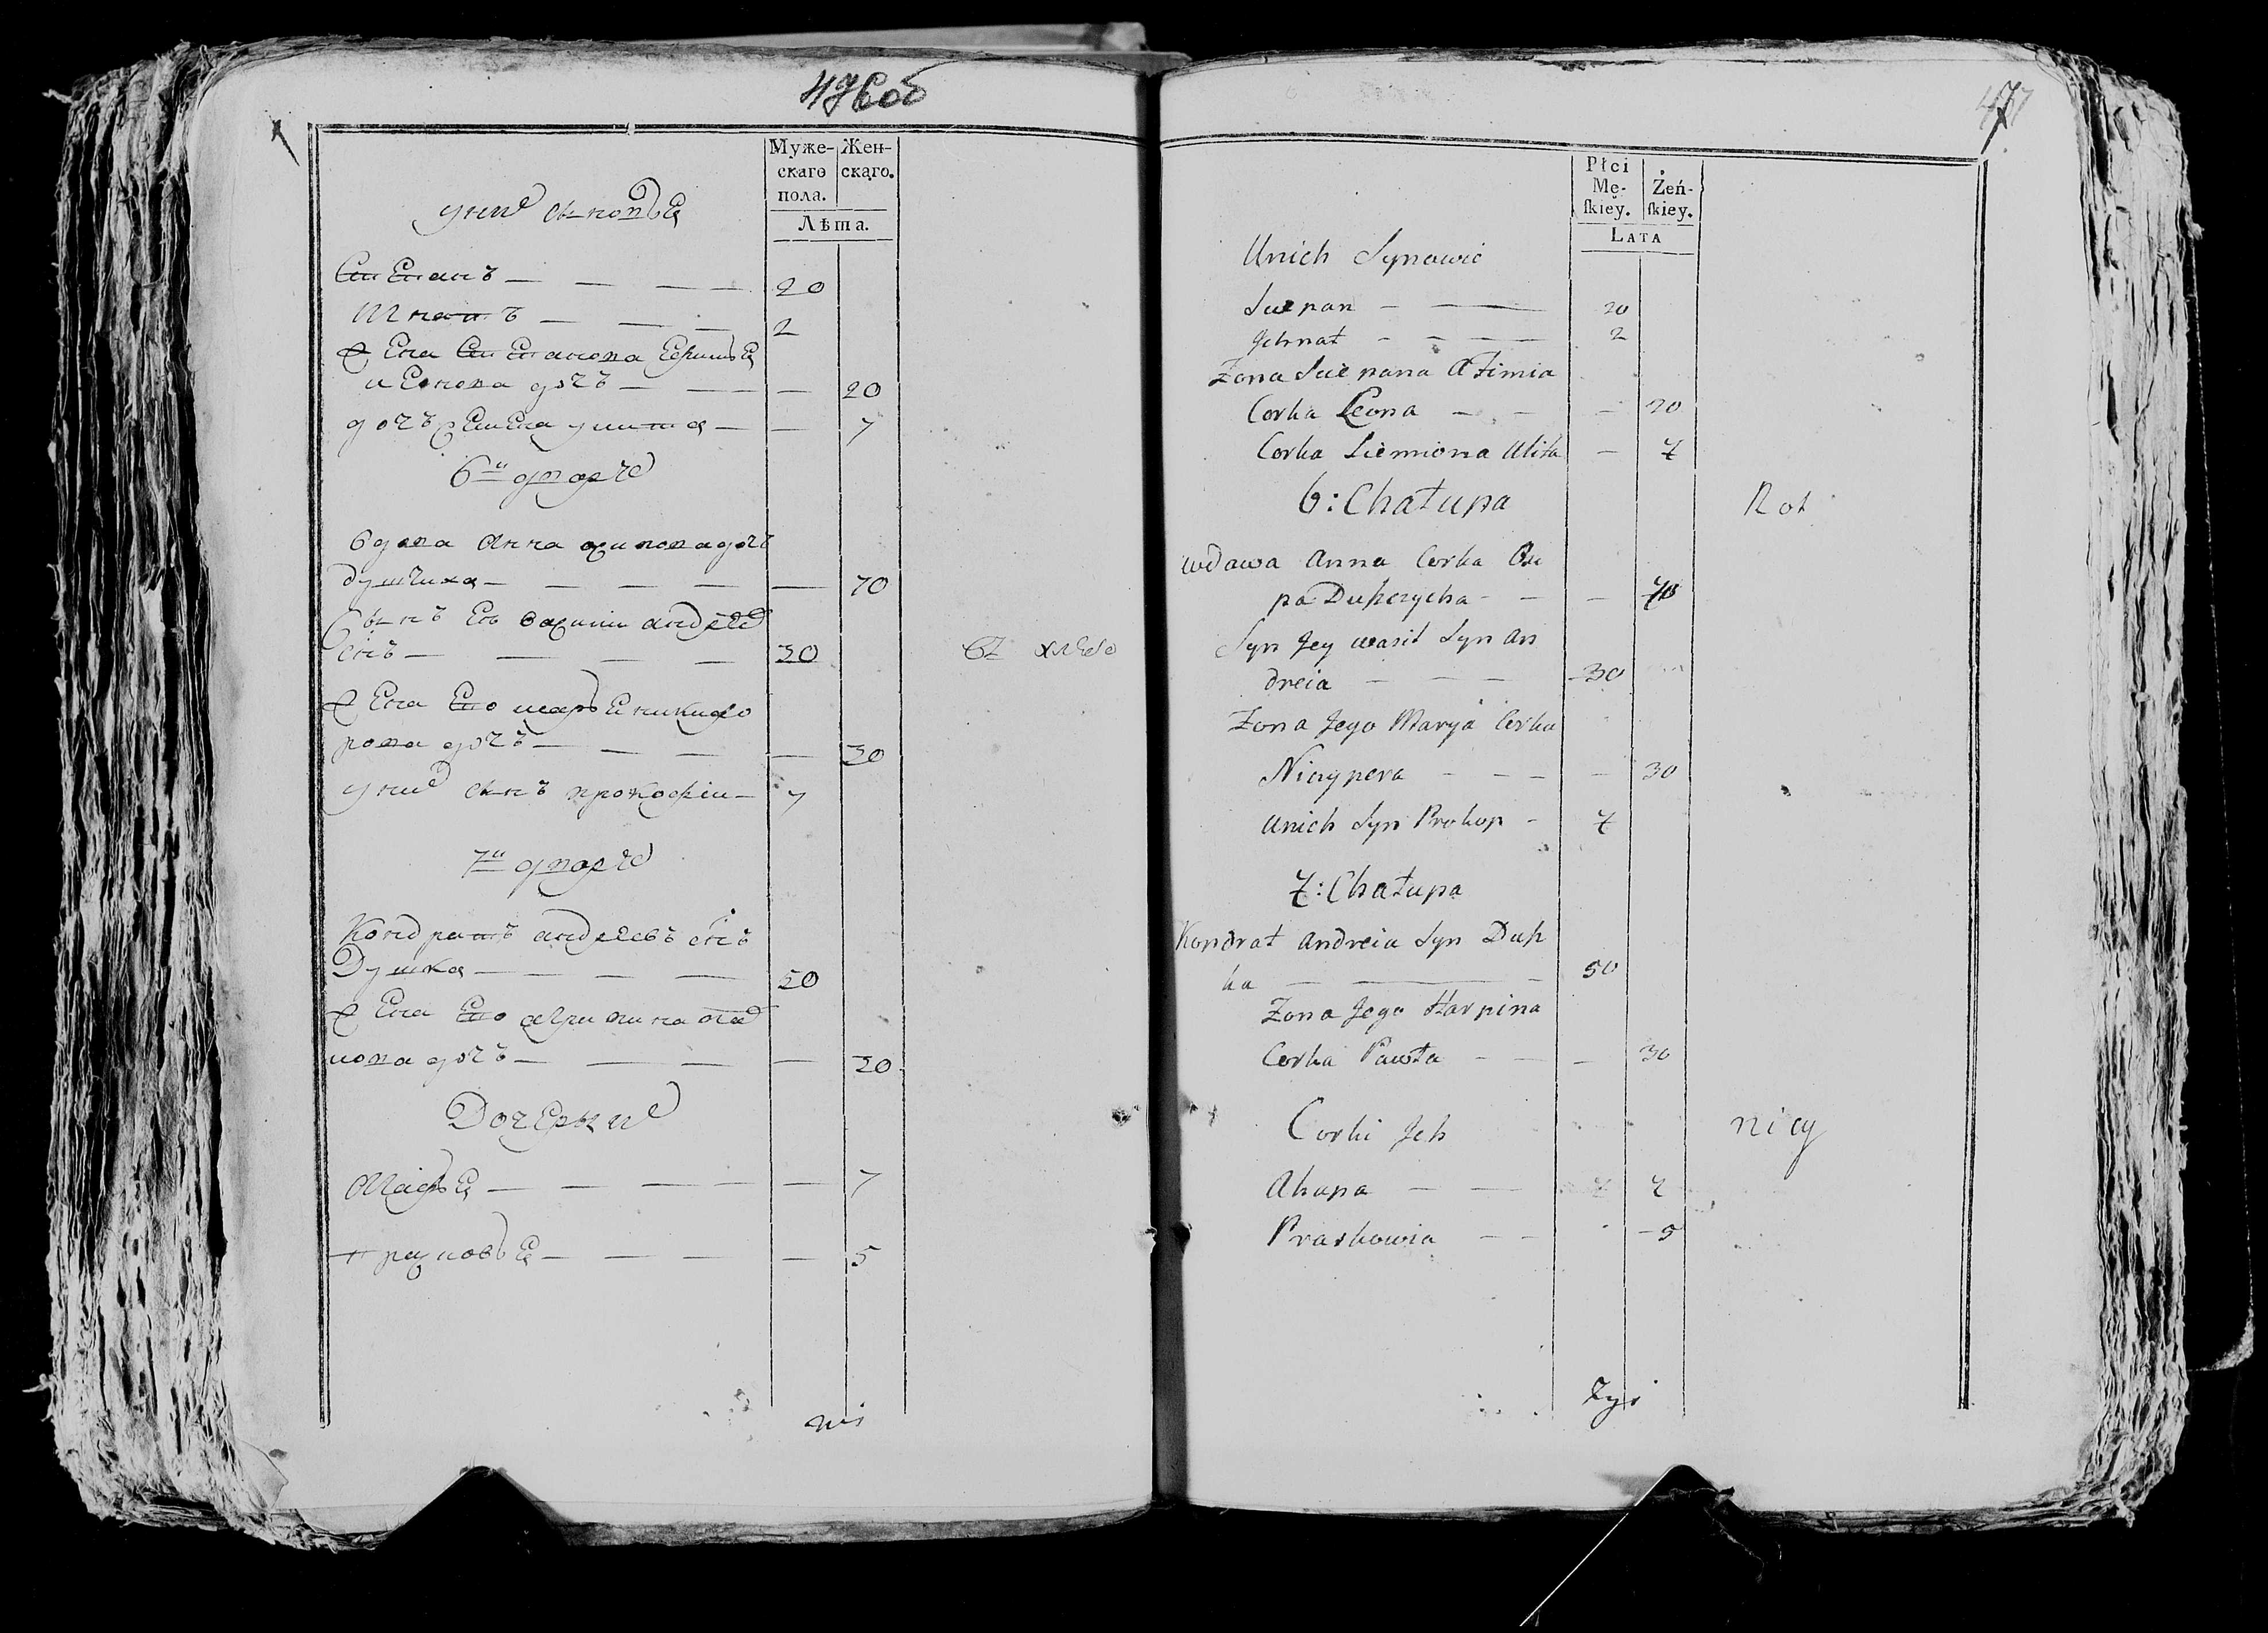 476об
Муже-
скаго
пола.
Жен-
скаго.
Лѣта.
у них сыновья
Степанъ — — — — 20
Игнатъ — — — 2
жена Степанова
леонова дочъ — — — 20
дочъ семена улита — — 7
6й дворъ
вдова анна осипова дочъ
душчиха — — — — — 70
Сынъ ее василии андрее
снъ — — — — 30
жена его марья никифо
рова дочъ — — — — 30
у них сынъ прокофiи — 7
7й дворъ
Кондратъ андреевъ снъ
Душка — — — — 50
жена его агрипина пав
лова дочъ — — — — 30
Дочери их
— — — — — 7
прасковья — — — — — 5
477
Płci
Mę-
ſkiey.
Żeń-
ſkiey.
LATA
Unich Synowie
Suepan — — 20
Jehnat — — — — 2
Żona Suepana Afimia
Corka Leona — — — 20
Corka Siemiona Ulita — 7
6: Chałupa
Rol
wdowa Anna Corka Osi
pa Duszczycha — — — 70
Syn Jey wasil Syn An
dreia — — — 30
Żona Jego Marya Corka
Nicypera — — — — 30
Unich Syn Prokop — 7
7: Chałupa
Kondrat Andreia Syn Dusz
ka — — — 50
Żona Jego Harpina
Corka Pawła — — — 30
Corki Jch
nicy
Ahapa — — 7
Praskowia — — — 5